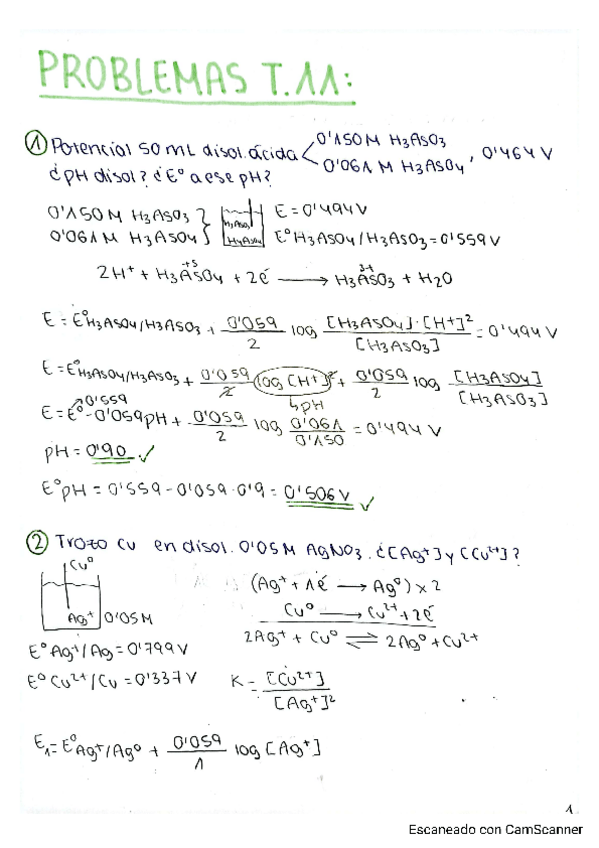 PROBLEMAS T.11:
① Potencial 50 mL disol. ácida < 0'150 M H3AsO3
0'061 M H3AsO4, 0'464 V
¿pH disol? ¿Eº a ese pH?
0'150 M H3AsO3 } H3AsO3 E = 0'494 V
0'061 M H3AsO4 } H3AsO4 Eº H3AsO4/H3AsO3 = 0'559 V
+5 3+
2H+ + H3AsO4 + 2e⁻ ⟶ H3AsO3 + H2O
E = Eº H3AsO4/H3AsO3 + 0'059/2 log [H3AsO4]·[H+]²/[H3AsO3] = 0'494 V
E = Eº H3AsO4/H3AsO3 + 0'059/2 log [H+]² + 0'059/2 log [H3AsO4]/[H3AsO3]
0'559 ↳ pH
E = Eº - 0'059pH + 0'059/2 log 0'061/0'150 = 0'494 V
pH = 0'90 ✓
Eº pH = 0'559 - 0'059 · 0'9 = 0'506 V ✓
② Trozo Cu en disol. 0'05 M AgNO3. ¿[Ag+] y [Cu2+]?
Cuº (Ag+ + 1e⁻ ⟶ Agº) x 2
Ag+ 0'05 M Cuº ⟶ Cu2+ + 2e⁻
2Ag+ + Cuº ⇌ 2Agº + Cu2+
Eº Ag+/Ag = 0'799 V
Eº Cu2+/Cu = 0'337 V K = [Cu2+]/[Ag+]²
E1 = Eº Ag+/Agº + 0'059/1 log [Ag+]
1
Escaneado con CamScanner